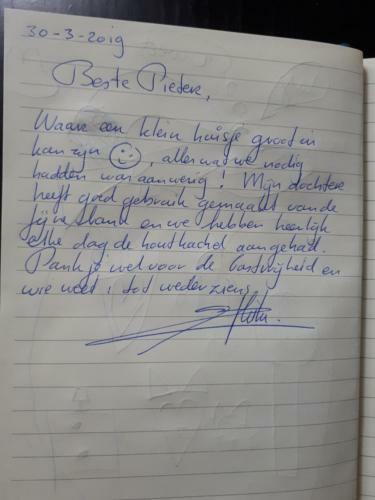 30-3-2019
Beste Pieter,
Waar een klein huisje groot in
kan zijn, alles wat we nodig
hadden was aanwezig! Mijn dochter
heeft goed gebruik gemaakt van de
fijne bank en we hebben heerlijk
elke dag de houtkachel aangehad.
Dank je wel voor de gastvrijheid en
wie weet, tot weder ziens.